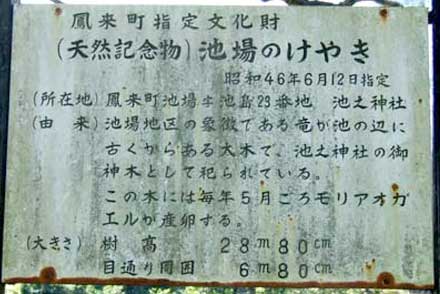 鳳来町指定文化財
(天然記念物)池場のけやき
昭和46年6月12日指定
(所在地)鳳来町池場字池島23番地 池之神社
(由 来)池場地区の象徴である竜が池の辺に
古くからある大木で、池之神社の御
神木として祀られている。
この木には毎年5月ごろモリアオガ
エルが産卵する。
(大きさ)樹 高 28m80cm
目通り周囲 6m80cm